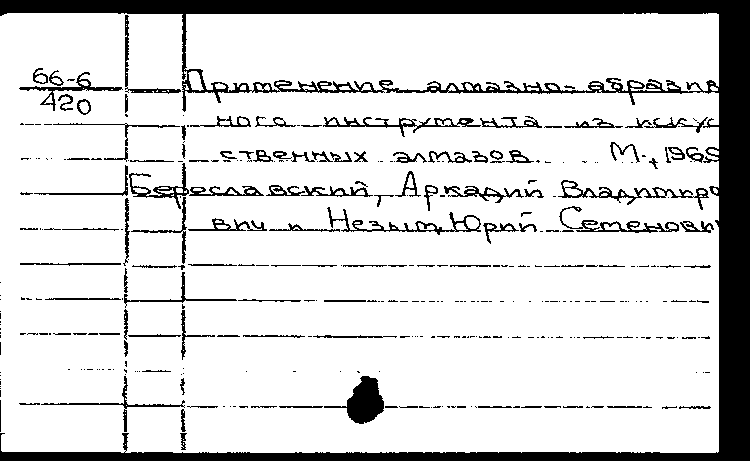 66-6
420
Применение алмазно-абразив
ного инструмента из искус
ственных алмазов. М., 1965
Береславский, Аркадий Владимиро
вич и Незым, Юрий Семенови